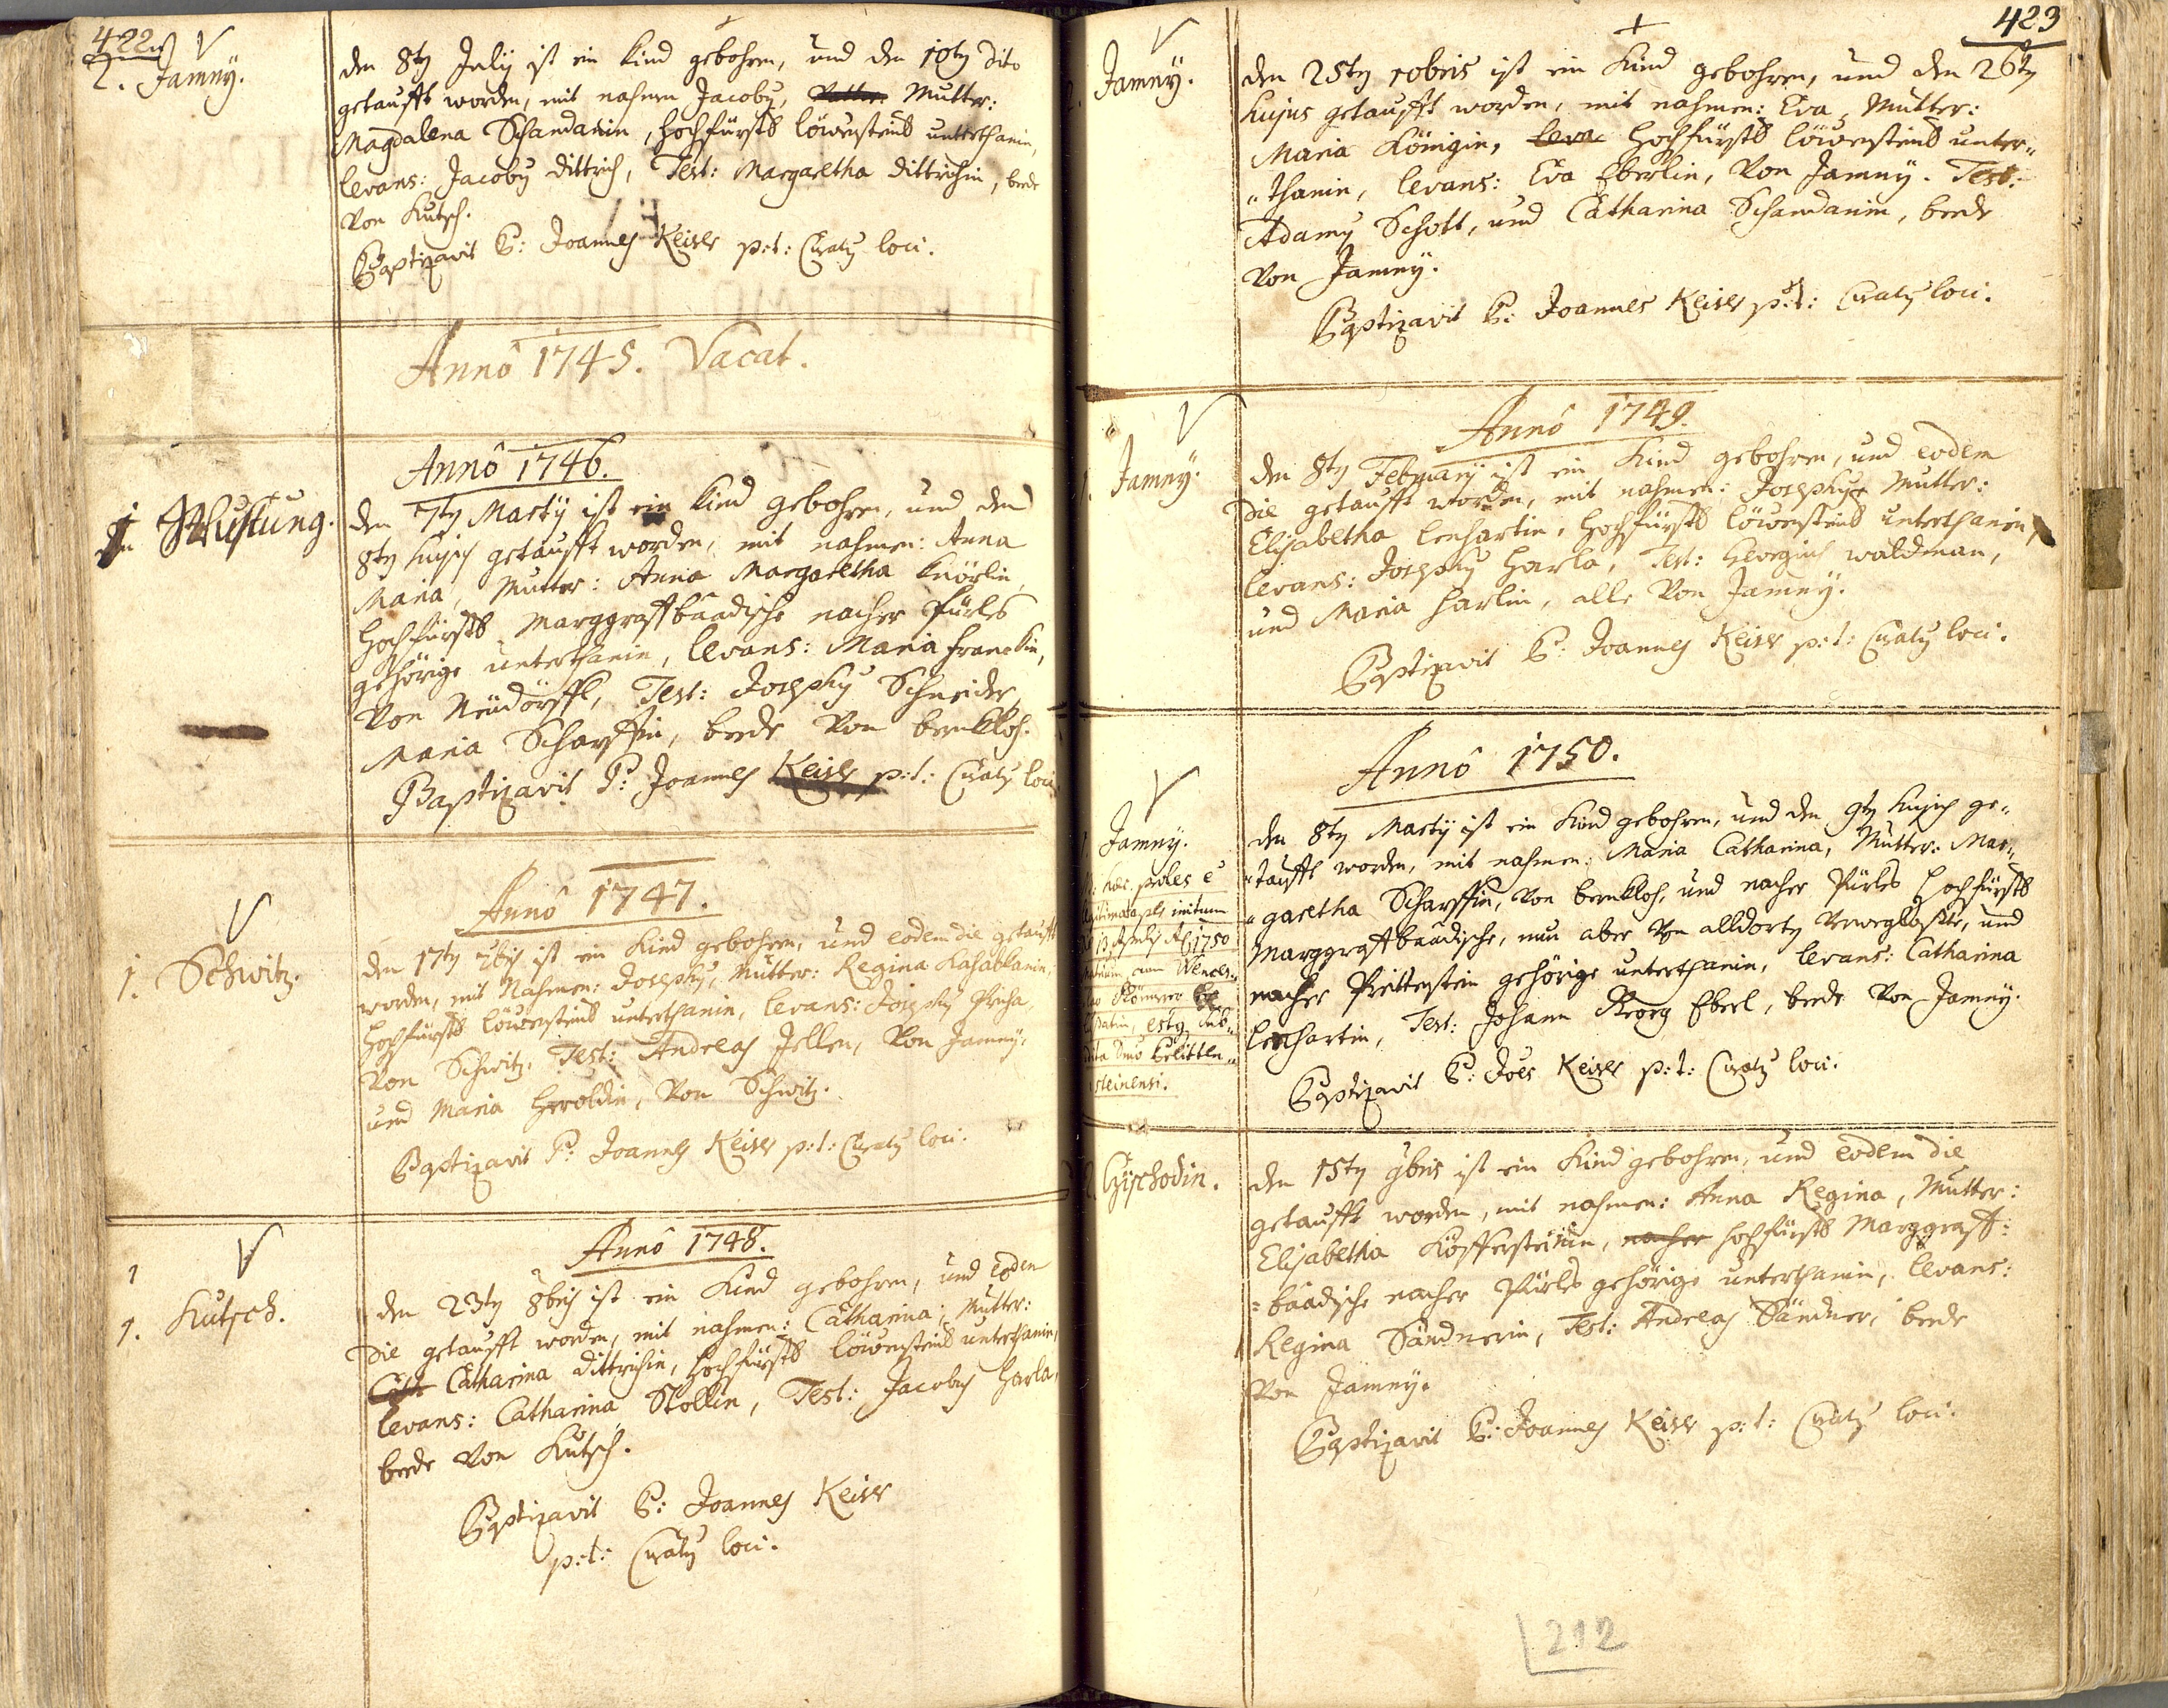 422
2. Jamny.
den 8ty July ist ein Kind gebohren, und den 10ty dito
getaufft worden, mit nahmen Jacoby, Mutter:
Magdalena Schandanin, hochfürstl löwensteins unterthanin,
levans: Jacoby Dittrich, Test: Margaretha Dittrichin, beede
von Kutsch.
Baptizavit P: Joannes Keiser p:t: Curaty loci.
Annô 1745. Vacat.
Annô 1746.
Wustung.
den 7ty Martÿ ist ein Kind gebohren, und den
8ty hujus getaufft worden, mit nahmen: Anna
Maria, Mutter: Anna Margaretha Knörlin,
hochfürstl Marggraffbaadische nacher Pürles
gehörige unterthanin, levans: Maria Franckin,
von Neüdörffl, Test: Josephy Schneider,
Maria Scharffin, beede von bernkloh.
Baptizavit P: Joannes Keiser p:t: Curaty loci
Annô 1747.
1. Schwitz.
den 17ty 7bris ist ein Kind gebohren, und eodem die getaufft
worden, mit Nahmen: Josephy, Mutter: Regina Kasablanin,
hochfürstl löwensteins unterthanin, levans: Josephy Pricha,
von Schwitz, Test: Andreas Jellen, von Jamny,
und Maria Heroldin, von Schwitz.
Baptizavit P: Joannes Keiser p:t: Curaty loci.
Annô 1748.
1. Kutsch.
den 23ty 8bris ist ein Kind gebohren, und eodem
die getaufft worden, mit nahmen: Catharina, Mutter:
Cath Catharina Dittrichin, hochfürstl löwensteins unterthanin,
levans: Catharina Stollin, Test: Jacoby Harla,
beede von Kutsch.
Baptizavit P: Joannes Keiser
p:t: Curaty loci.
423
Jamny.
den 25ty xobris ist ein Kind gebohren, und den 26ty
hujus getaufft worden, mit nahmen: Eva, Mutter:
Maria Königin, leva hochfürstl löwensteins unter„
„thanin, levans: Eva Eberlin, von Jamny. Test:
Adamy Schott, und Catharina Schandanin, beede
von Jamny.
Baptizavit P: Joannes Keiser p:t: Curaty loci.
Annô 1749.
1. Jamny.
den 8ty February ist ein Kind gebohren, und eodem
die getaufft worden, mit nahmen: Josephy Mutter:
Elisabetha Lenhartin, hochfürstl löwensteins unterthanin,
levans: Josephy Harla, Test: Georgius waldman,
und Maria Harlin, alle von Jamny.
Baptizavit P: Joannes Keiser p:t: Curaty loci.
Annô 1750.
Jamny.
proles e
initum
1750
Wences„
steinensi.
den 8ty Martÿ ist ein Kind gebohren, und den 9ty hujus ge„
„taufft worden, mit nahmen: Maria Catharina, Mutter: Mar„
„garetha Scharffin, von bernkloh, und nacher Pürles hochfürstl
Marggraffbaadische, nun aber von alldorty weggloßte, und
nacher Prittenstein gehörige unterthanin, levans: Catharina
Lenhartin, Test: Johann Georg Eberl, beede von Jamny.
Baptizavit P: Joes Keiser p:t: Curaty loci.
2. Czischodin.
den 15ty 9bris ist ein Kind gebohren, und eodem die
getaufft worden, mit nahmen: Anna Regina, Mutter:
Elisabetha Koffersteinin, nacher hochfürstl Marggraff:
=baadische nacher Pürles gehörige unterthanin, levans:
Regina Sändnerin, Test: Andreas Sändner, beede
von Jamny.
Baptizavit P: Joannes Keiser p:t: Curaty loci.
212